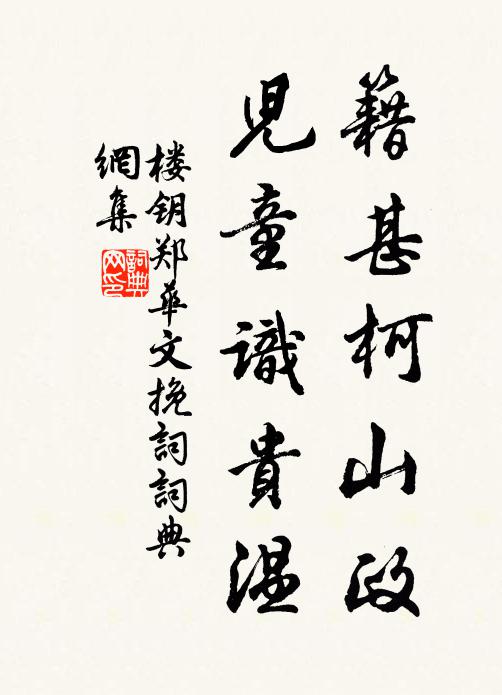 籍甚柯山政
兒童識貴温
楼钥郑華文挽詞詞典
網集
詞典网印